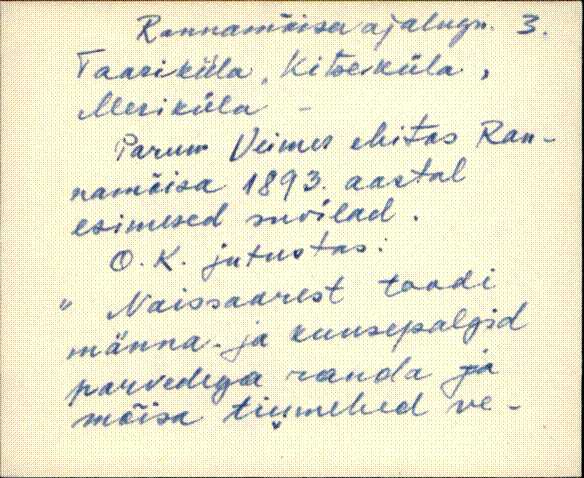 Rannamõisa ajalugu. 3.
Taariküla, Kitseküla,
Meriküla -
Parun Veimer ehitas Ran-
namõisa 1893. aastal
esimesed suvilad.
O. K. jutustas:
" Naissaarest toodi
männa- ja kuusepalgid
parvedega randa ja
mõisa tiumehed ve-